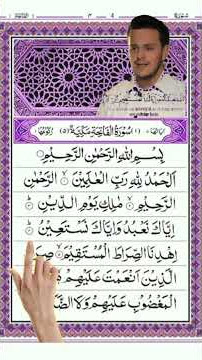 سُوْرَةُ الْفَاتِحَةِ مَكِّيَّةٌ (٥)
بِسْمِ اللّٰهِ الرَّحْمٰنِ الرَّحِيْمِ
اَلْحَمْدُ لِلّٰهِ رَبِّ الْعٰلَمِيْنَ ۙ الرَّحْمٰنِ
الرَّحِيْمِ ۙ مٰلِكِ يَوْمِ الدِّيْنِ
اِيَّاكَ نَعْبُدُ وَاِيَّاكَ نَسْتَعِيْنُ
اِهْدِنَا الصِّرَاطَ الْمُسْتَقِيْمَ ۙ صِرَ
الَّذِيْنَ اَنْعَمْتَ عَلَيْهِمْ
الْمَغْضُوْبِ عَلَيْهِمْ وَلَا الضَّ